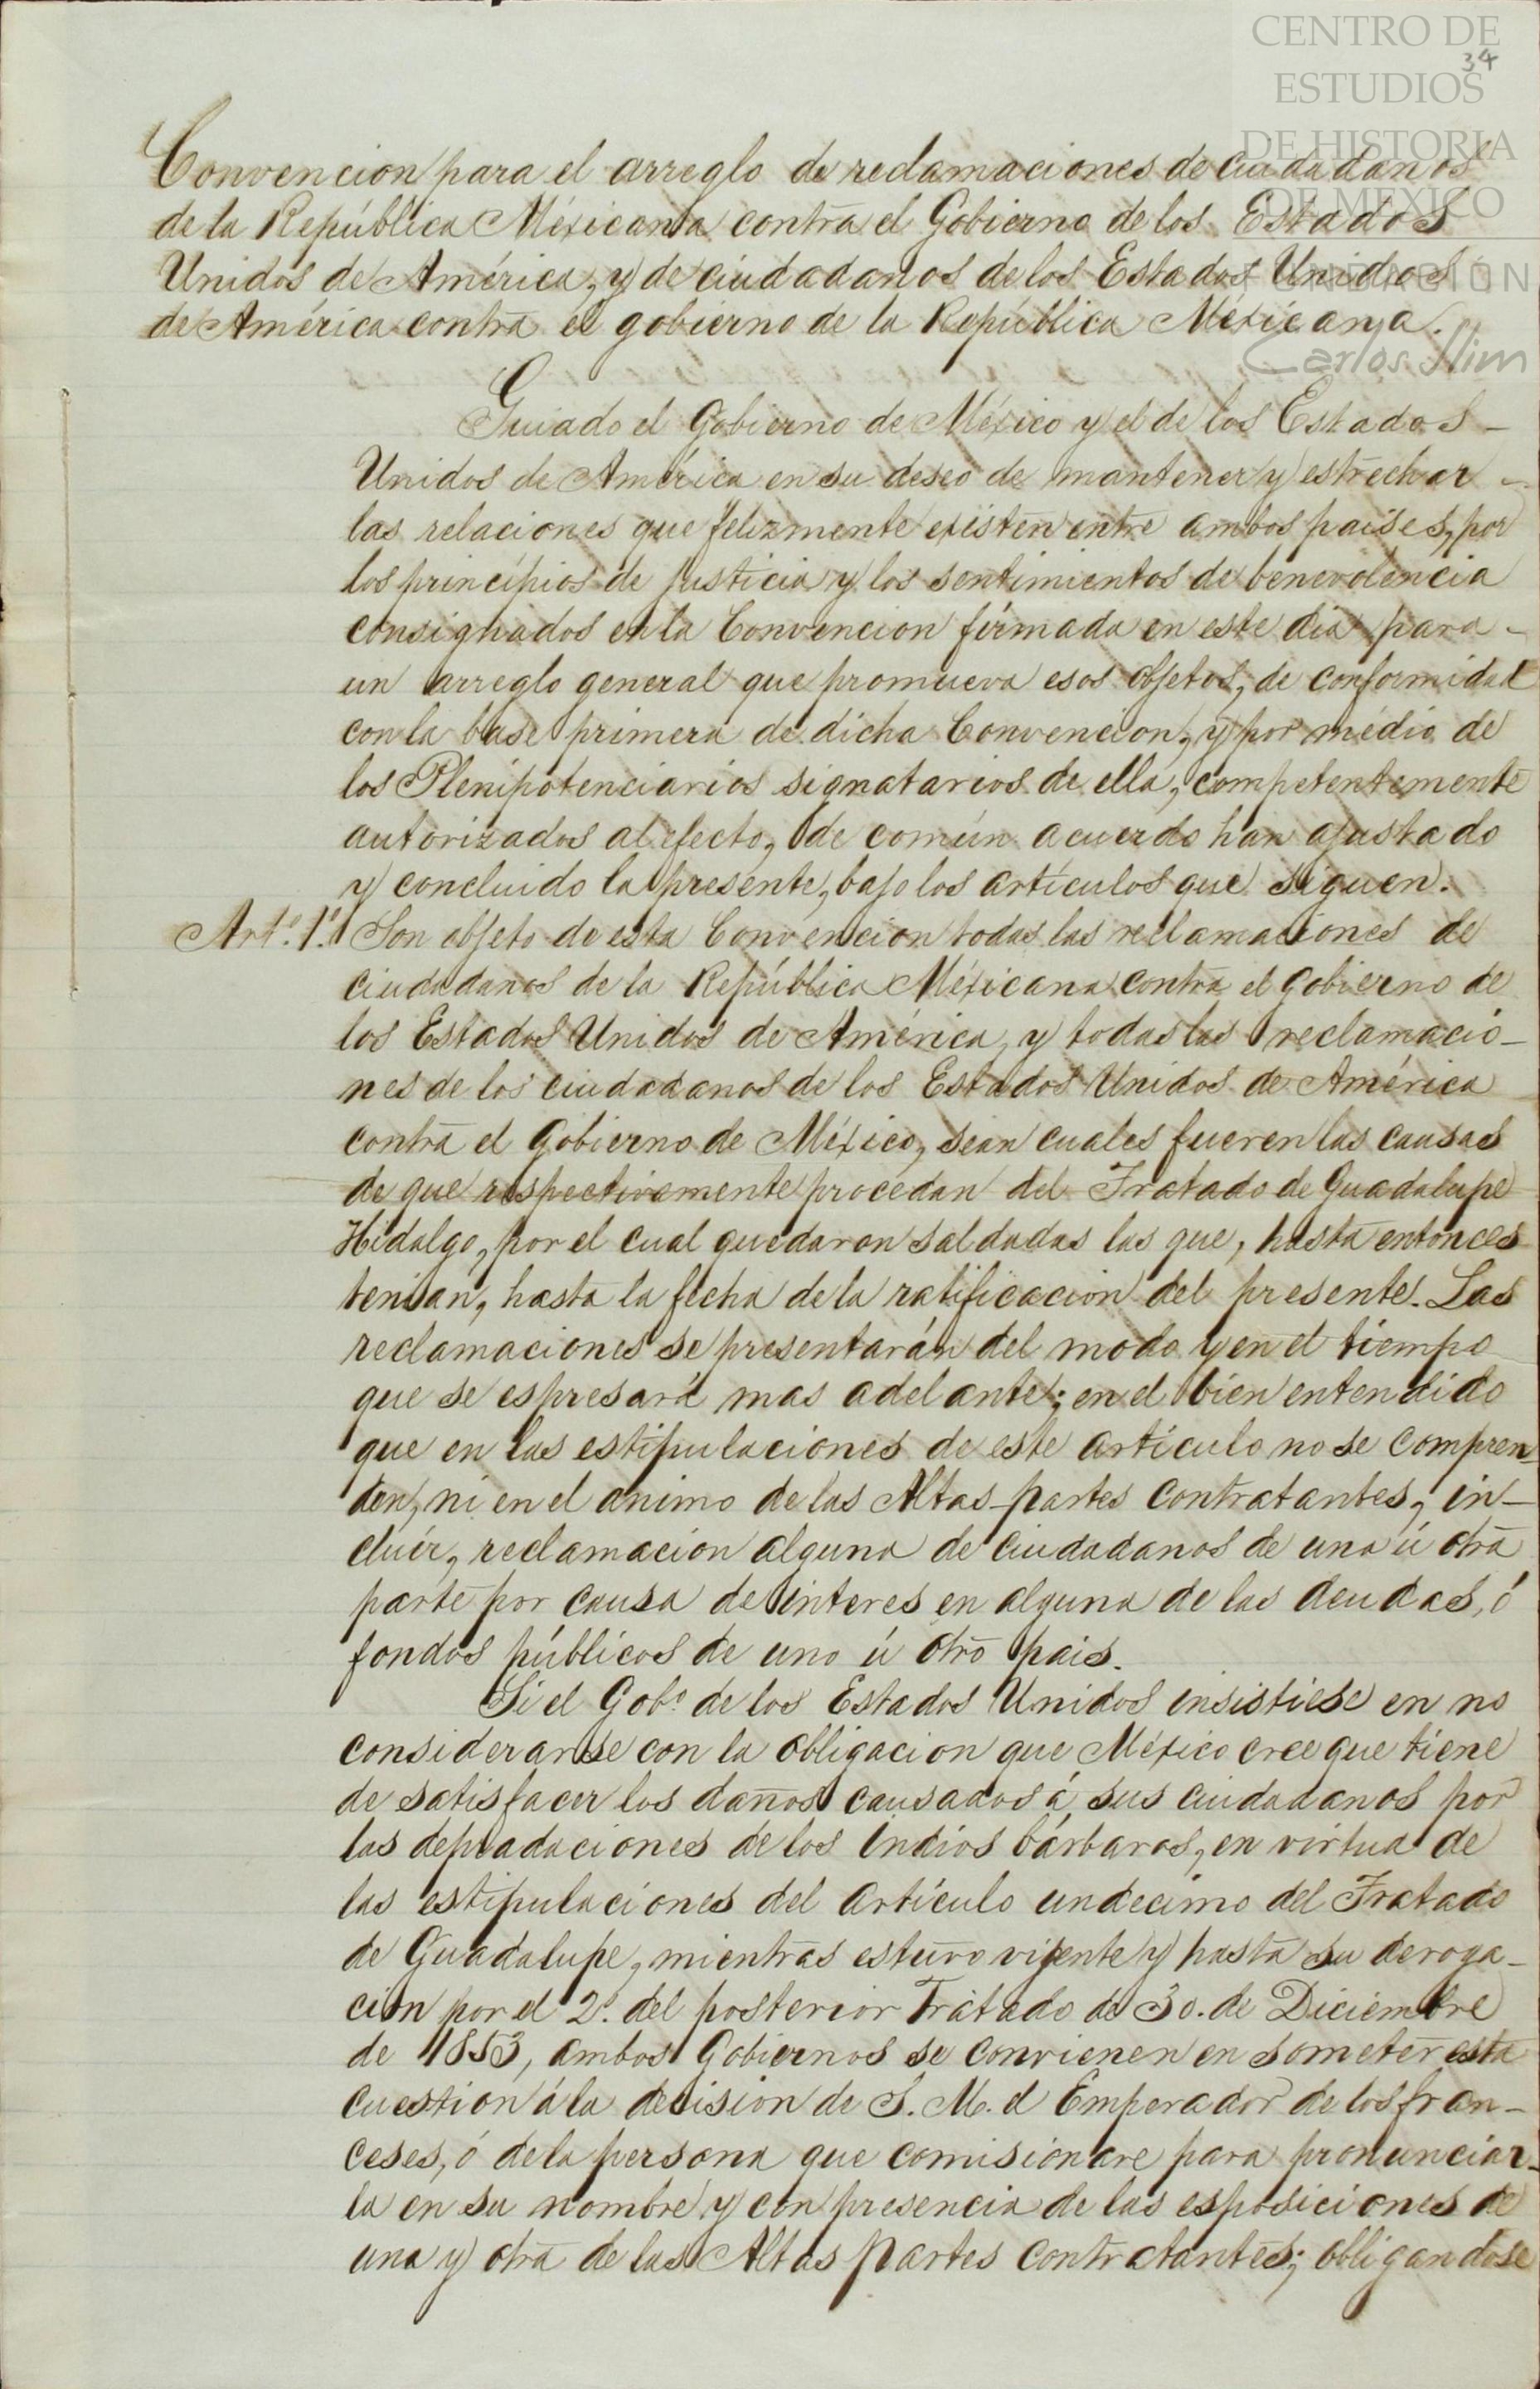 CENTRO DE
34
ESTUDIOS
DE HISTORIA
DE MEXICO
FUNDACION
Carlos Slim
Convencion para el arreglo de reclamaciones de ciudadanos
de la República Méxicana contra el Gobierno de los Estados
Unidos de América, y de ciudadanos de los Estados Unidos
de América contra el gobierno de la República Méxicana.
Guiado el Gobierno de México y el de los Estados-
Unidos de América en su deseo de mantener y estrechar -
las relaciones que felizmente existen entre ambos paises, por
los principios de justicia y los sentimientos de benevolencia
consignados en la Convencion firmada en este dia para -
un arreglo general que promueva esos objetos, de conformidad
con la base primera de dicha Convencion, y por médio de
los Plenipotenciarios signatarios de ella, competentemente
autorizados al efecto, de común acuerdo han ajustado
y concluido la presente, bajo los artículos que siguen.
Art.º 1.º Son objeto de esta Convencion todas las reclamaciones de
ciudadanos de la República Méxicana contra el Gobierno de
los Estados Unidos de América, y todas las reclamacio-
nes de los ciudadanos de los Estados Unidos de América
contra el Gobierno de México, sean cuales fueren las causas
de que respectivamente procedan del Tratado de Guadalupe
Hidalgo, por el cual quedaron saldadas las que, hasta entonces
tenian, hasta la fecha de la ratificacion del presente. Las
reclamaciones se presentarán del modo y en el tiempo
que se espresará mas adelante; en el bien entendido
que en las estipulaciones de este artículo no se compren-
den, ni en el animo de las Altas partes contratantes, in-
cluir, reclamacion alguna de ciudadanos de una ú otra
parte por causa de interes en alguna de las deudas, ó
fondos públicos de uno ú otro pais.
Si el Gob.º de los Estados Unidos insistiese en no
considerarse con la obligacion que México cree que tiene
de satisfacer los daños causados á sus ciudadanos por
las depradaciones de los indios bárbaros, en virtud de
las estipulaciones del artículo undecimo del Tratado
de Guadalupe, mientras estuvo vigente y hasta su deroga-
cion por el 2.º del posterior Tratado de 30. de Diciembre
de 1853, ambos Gobiernos se convienen en someter esta
cuestion á la decision de S. M. el Emperador de los fran-
ceses, ó de la persona que comisionare para pronunciar-
la en su nombre y con presencia de las esposiciones de
una y otra de las Altas partes contratantes; obligandose